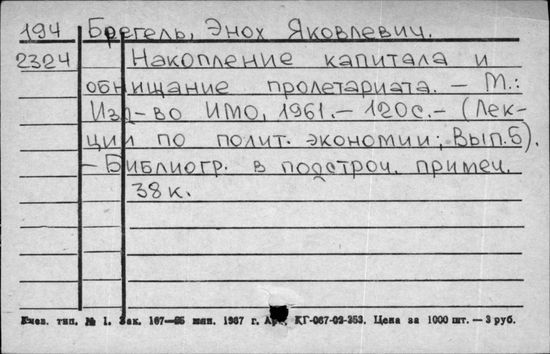 194 Брегель, Энох Яковлевич.
2324 Накопление капитала и
обнищание пролетариата. – М.:
Изд-во ИМО, 1961. – 120с. – (Лек-
ции по полит. экономии; Вып.6).
– Библиогр. в подстроч. примеч.
38к.
тип. № 1. Зак. 167— 1967 г. КГ-067-02-353. Цена за 1000 шт. — 3 руб.